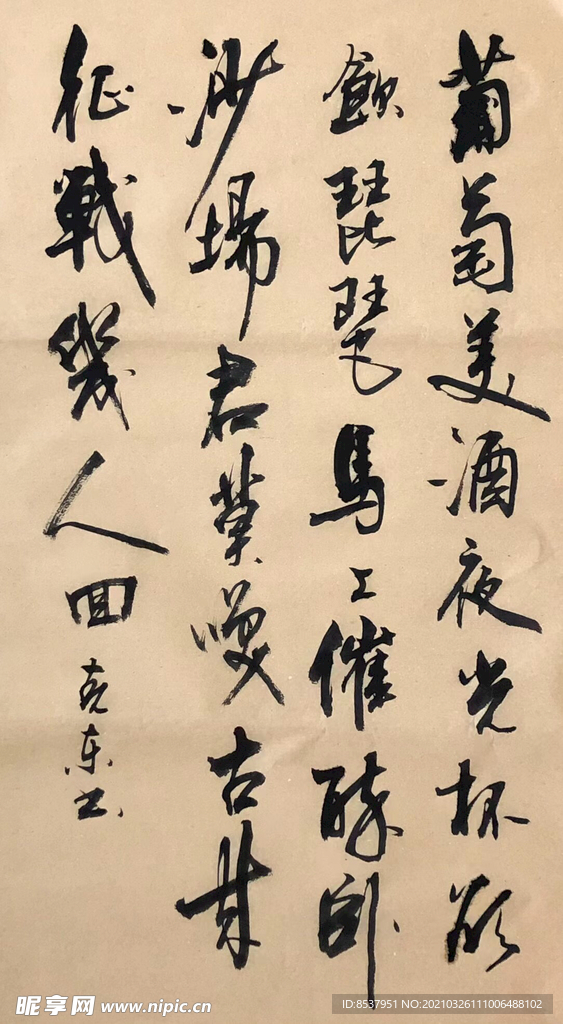 葡萄美酒夜光杯欲
飲琵琶馬上催醉卧
沙場君莫咲古来
征戰幾人回 克东书
昵享网 www.nipic.cn
ID:8537951 NO:20210326111006488102